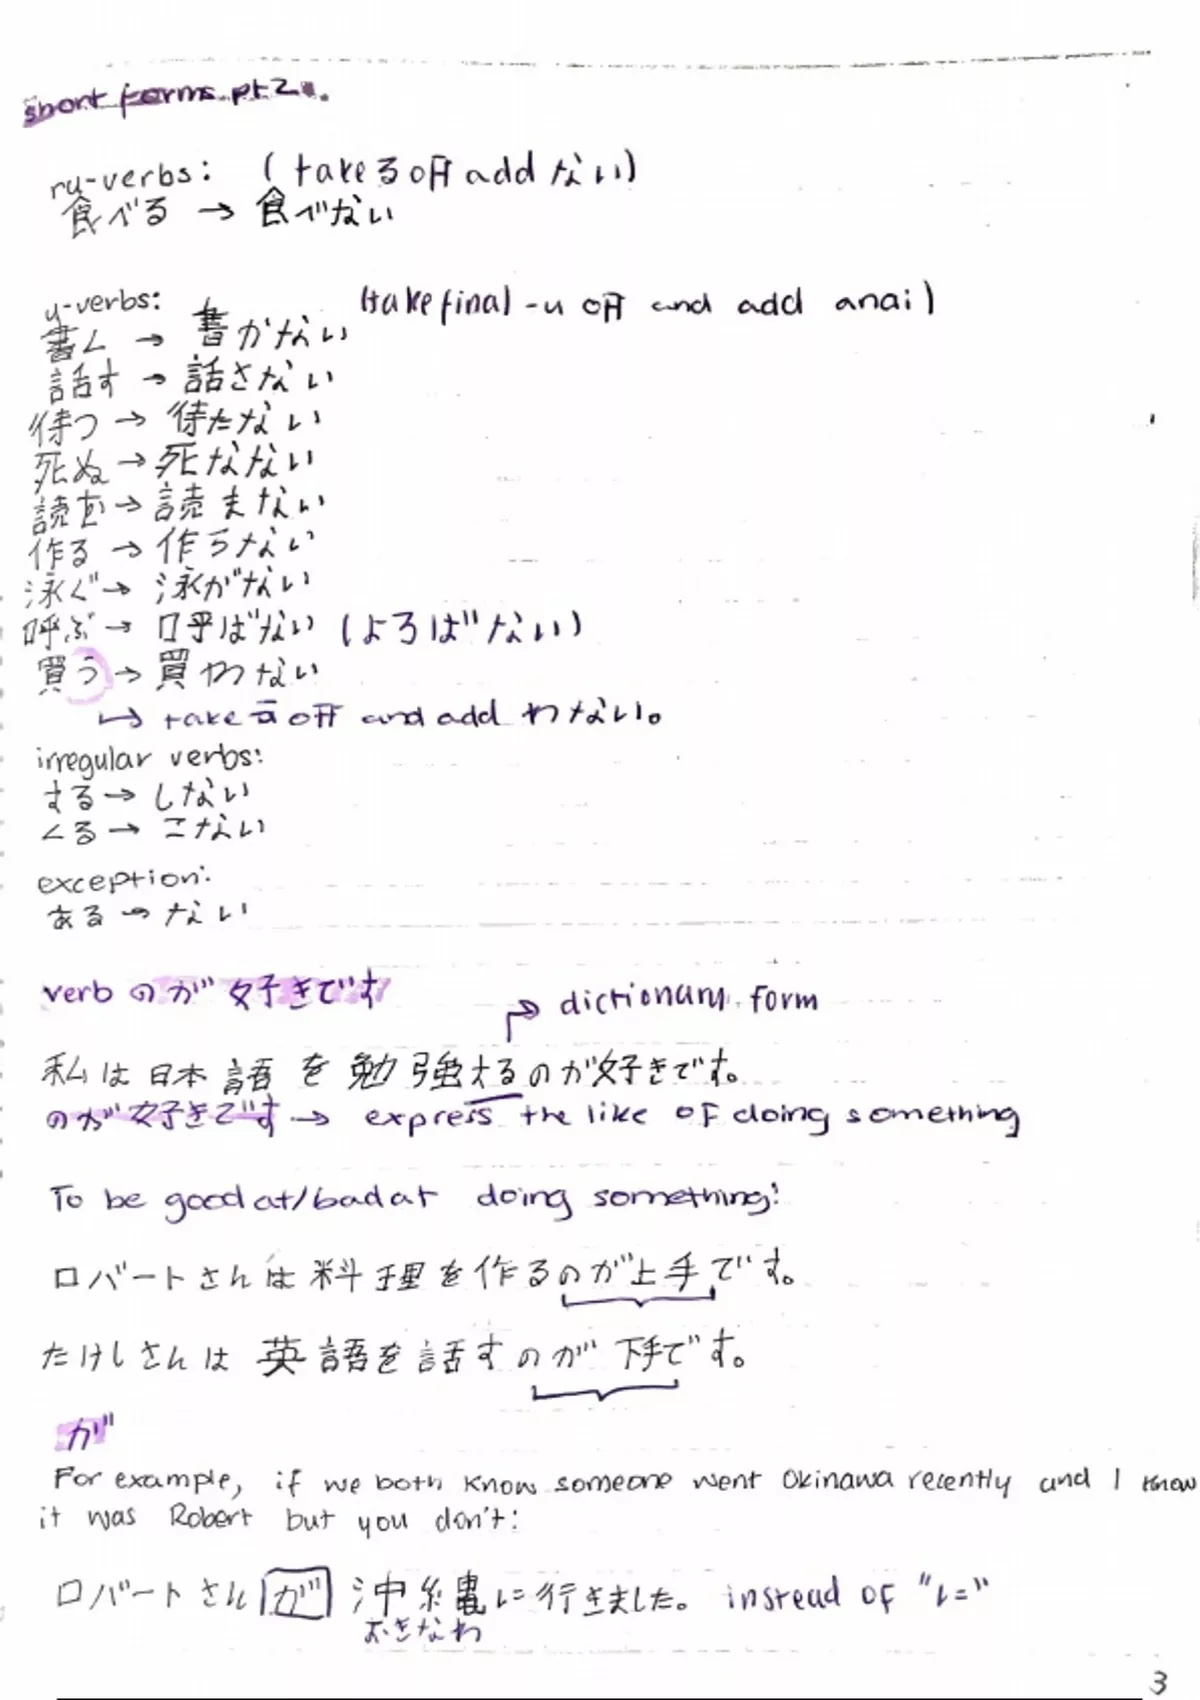 short forms pt2.
ru-verbs: (take る off add ない)
食べる → 食べない
u-verbs: (take final -u off and add anai)
書く → 書かない
話す → 話さない
待つ → 待たない
死ぬ → 死なない
読む → 読まない
作る → 作らない
泳ぐ → 泳がない
呼ぶ → 呼ばない (よろばない)
買う → 買わない
↳ take う off and add わない。
irregular verbs:
する → しない
くる → こない
exception:
ある → ない
verb のが好きです
↱ dictionary form
私は日本語を勉強するのが好きです。
のが好きです → express the like of doing something
To be good at/bad at doing something:
ロバートさんは料理を作るのが上手です。
たけしさんは英語を話すのが下手です。
が
For example, if we both know someone went Okinawa recently and I know
it was Robert but you don't:
ロバートさんが沖縄に行きました。 instead of "に"
おきなわ
3